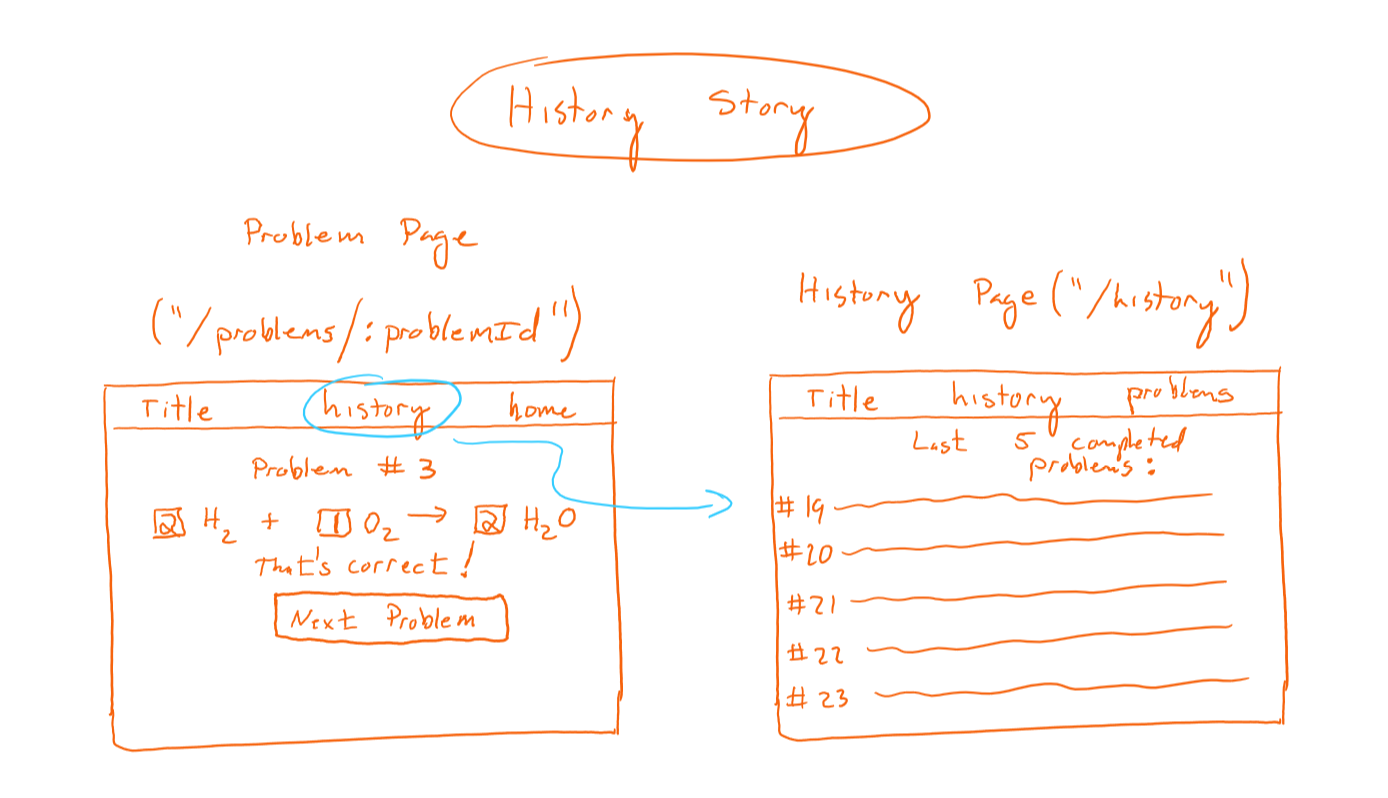 History Story
Problem Page
("/problems/:problemId")
Title history home
Problem # 3
2 H2 + 1 O2 → 2 H2O
That's correct!
Next Problem
History Page ("/history")
Title history problems
Last 5 completed
problems:
#19
#20
#21
#22
#23